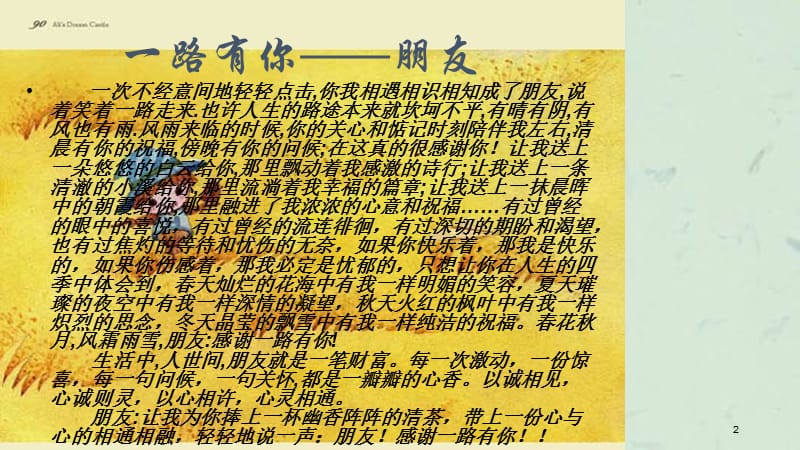 90 Ali's Dream Castle
一路有你——朋友
• 一次不经意间地轻轻点击,你我相遇相识相知成了朋友,说
着笑着一路走来.也许人生的路途本来就坎坷不平,有晴有阴,有
风也有雨,风雨来临的时候,你的关心和惦记时刻陪伴我左右,清
晨有你的祝福,傍晚有你的问候;在这真的很感谢你！让我送上
一朵悠悠的白云给你,那里飘动着我感激的诗行;让我送上一条
清澈的小溪给你,那里流淌着我幸福的篇章;让我送上一抹晨晖
中的朝霞给你,那里融进了我浓浓的心意和祝福……有过曾经
的眼中的喜悦，有过曾经的流连徘徊，有过深切的期盼和渴望，
也有过焦灼的等待和忧伤的无奈，如果你快乐着，那我是快乐
的，如果你伤感着，那我必定是忧郁的，只想让你在人生的四
季中体会到，春天灿烂的花海中有我一样明媚的笑容，夏天璀
璨的夜空中有我一样深情的凝望，秋天火红的枫叶中有我一样
炽烈的思念，冬天晶莹的飘雪中有我一样纯洁的祝福。春花秋
月,风霜雨雪,朋友:感谢一路有你!
生活中,人世间,朋友就是一笔财富。每一次激动，一份惊
喜，每一句问候，一句关怀,都是一瓣瓣的心香。以诚相见，
心诚则灵，以心相许，心灵相通。
朋友:让我为你捧上一杯幽香阵阵的清茶，带上一份心与
心的相通相融，轻轻地说一声：朋友！感谢一路有你！！
2